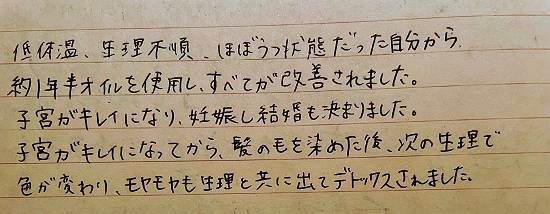 低体温、生理不順、ほぼうつ状態だった自分から、
約1年半オイルを使用し、すべてが改善されました。
子宮がキレイになり、妊娠し結婚も決まりました。
子宮がキレイになってから、髪の毛を染めた後、次の生理で
色が変わり、モヤモヤも生理と共に出てデトックスされました。